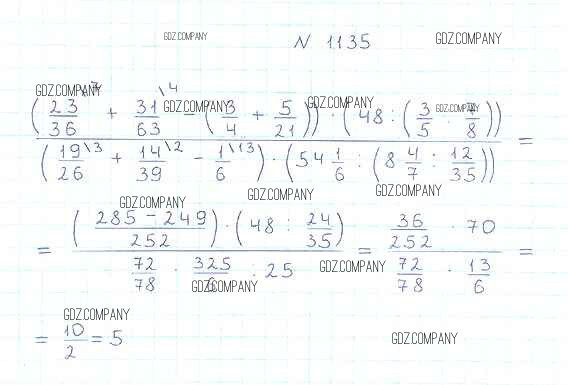 GDZ.COMPANY N 1135 GDZ.COMPANY
GDZ.COMPANY GDZ.COMPANY GDZ.COMPANY GDZ.COMPANY
((23/36 \7 + 31/63 \4 - (3/4 + 5/21)) · (48 : (3/5 · 7/8))) / ((19/26 \3 + 14/39 \2 - 1/6 \13) · (54 1/6 : (8 4/7 : 12/35))) =
GDZ.COMPANY GDZ.COMPANY GDZ.COMPANY
= ((285 - 249)/252) · (48 : 24/35) / (72/78 · 325/6 : 25) = (36/252 · 70) / (72/78 · 13/6) =
GDZ.COMPANY GDZ.COMPANY
GDZ.COMPANY GDZ.COMPANY
= 10/2 = 5